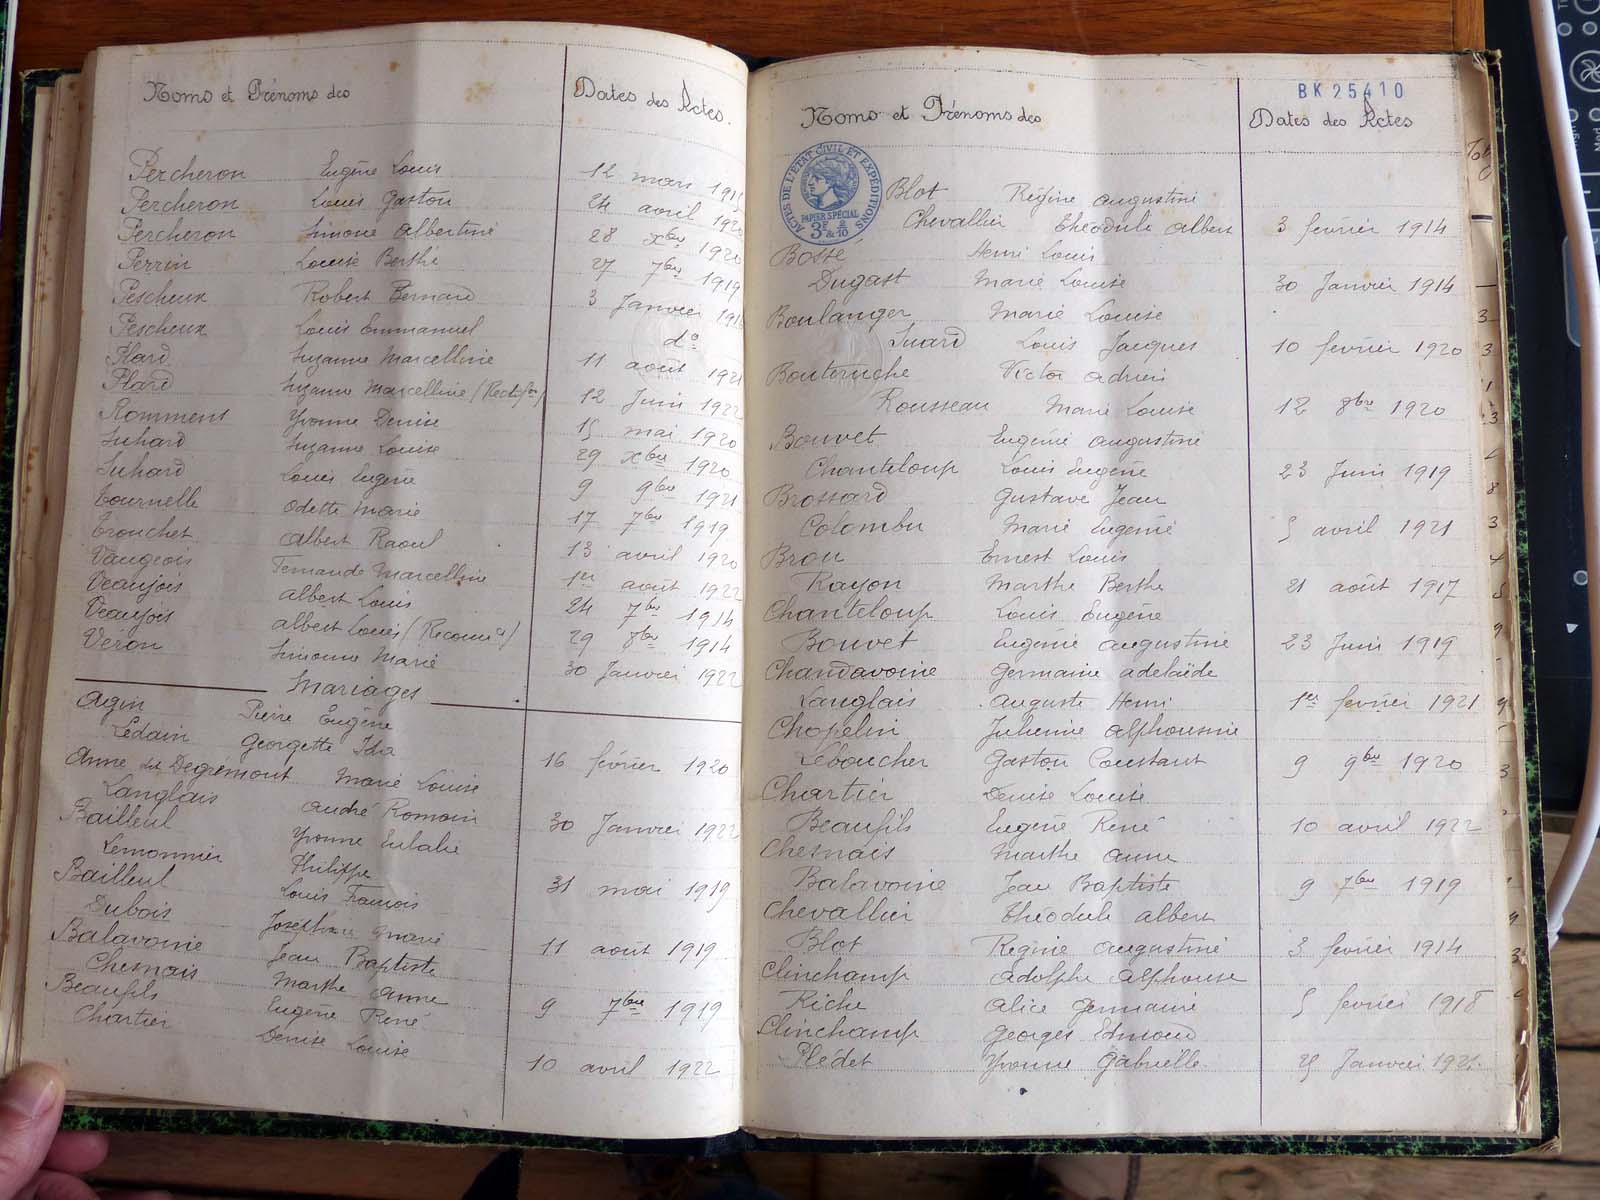 Noms et Prénoms des Dates des Actes.
Percheron Eugène Louis 12 mars
Percheron Louis Gaston 24 avril 1920
Percheron Simone Albertine 28 xbre 1920
Perrin Louise Berthe 27 7bre 1919
Pescheux Robert Bernard 3 Janvier
Pescheux Louis Emmanuel do
Plard Suzanne Marcelline 11 août 1921
Plard Suzanne Marcelline (Rectifon) 12 Juin 1922
Romment Yvonne Denise 15 mai 1920
Suhard Suzanne Louise 29 xbre 1920
Suhard Louis Eugène 9 9bre 1921
Tournelle Odette Marie 17 7bre 1919
Tronchet Albert Raoul 13 avril 1920
Vaugeois Fernande Marcelline 1er août 1922
Veaujois Albert Louis 24 7bre 1914
Veaujois Albert Louis (Reconn) 29 8bre 1914
Véron Simonne Marie 30 Janvier 1922
Mariages
Agin Pierre Eugène
Lédain Georgette Ida 16 février 1920
Anne dit Degremont Marie Louise
Langlais André Romain 30 Janvier 1922
Bailleul Yvonne Eulalie
Lemonnier Philippe 31 mai 1919
Bailleul Louis François
Dubois Joséphine Marie 11 août 1919
Balavoine Jean Baptiste
Chesnais Marthe Anne 9 7bre 1919
Beaufils Eugène René
Chartier Denise Louise 10 avril 1922
BK 25410
Noms et Prénoms des Dates des Actes
ACTES DE L'ETAT CIVIL ET EXPÉDITIONS
PAPIER SPÉCIAL
3F & 8/10
Blot Régine Augustine
Chevallier Théodule Albert 3 février 1914
Bossé Henri Louis
Dugast Marie Louise 30 Janvier 1914
Boulanger Marie Louise
Suard Louis Jacques 10 février 1920
Bouteruche Victor Adrien
Rousseau Marie Louise 12 8bre 1920
Bouvet Eugénie Augustine
Chanteloup Louis Eugène 23 Juin 1919
Brossard Gustave Jean
Colombu Marie Eugénie 5 avril 1921
Brou Ernest Louis
Rayon Marthe Berthe 21 août 1917
Chanteloup Louis Eugène
Bouvet Eugénie Augustine 23 Juin 1919
Chandavoine Germaine Adelaïde
Langlais Auguste Henri 1er février 1921
Chopelin Julienne Alphonsine
Leboucher Gaston Constant 9 9bre 1920
Chartier Denise Louise
Beaufils Eugène René 10 avril 1922
Chesnais Marthe Anne
Balavoine Jean Baptiste 9 7bre 1919
Chevallier Théodule Albert
Blot Régine Augustine 3 février 1914
Clinchamp Adolphe Alphonse
Riche Alice Germaine 5 février 1918
Clinchamp Georges Edmond
Plédet Yvonne Gabrielle 25 Janvier 1921.